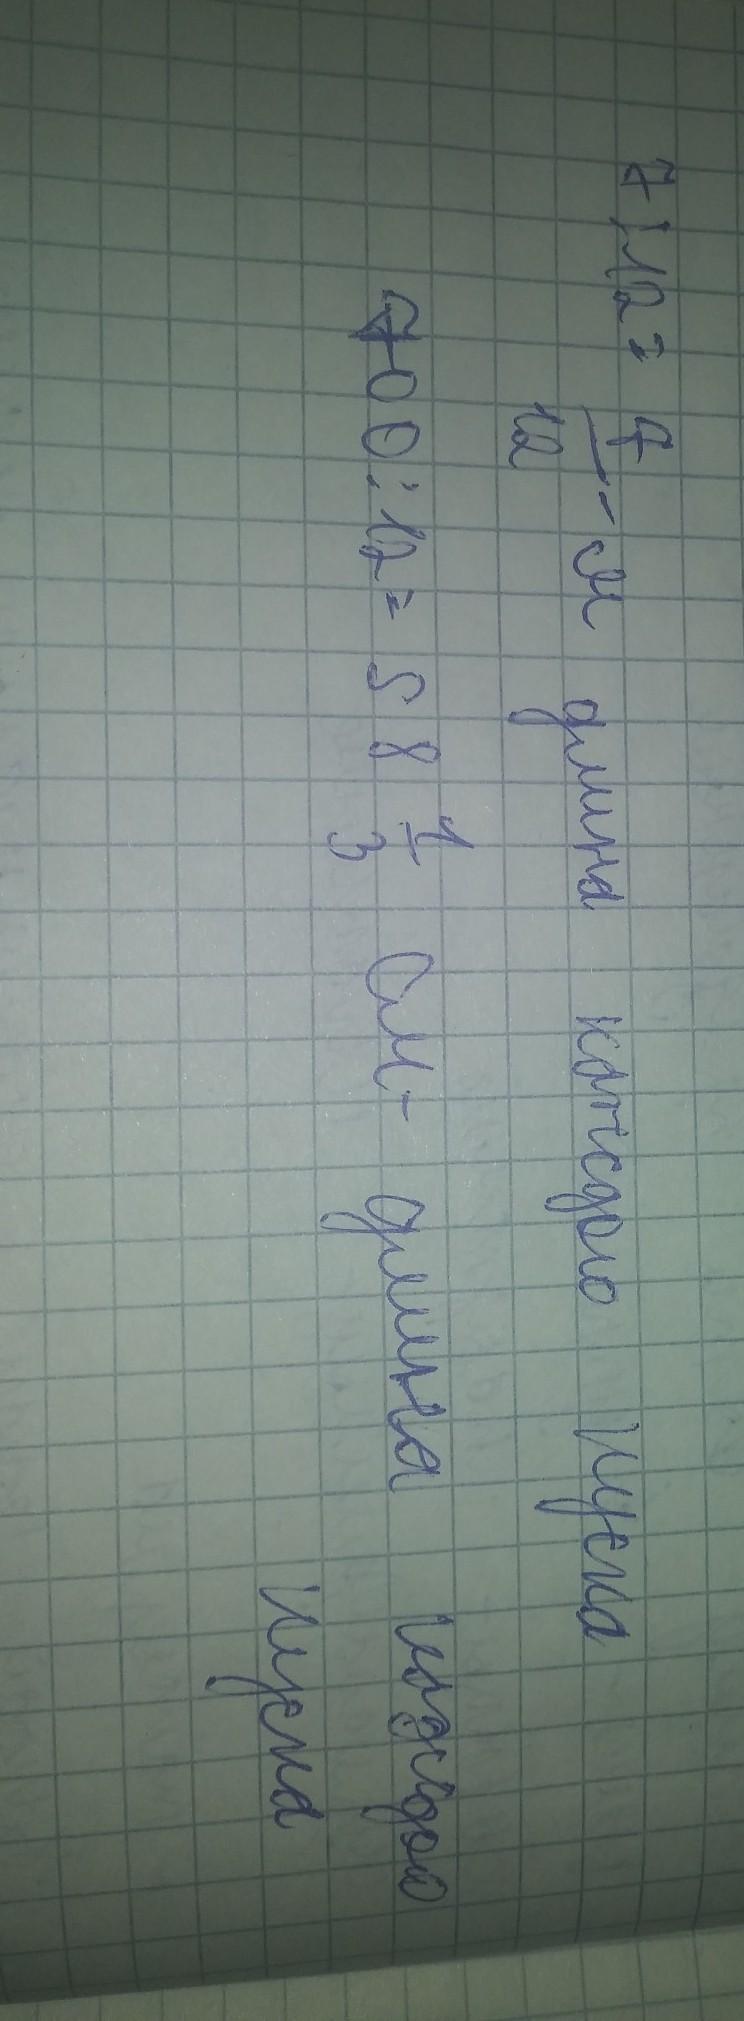 7:12 = 7/12 - м длина каждого куска
700:12 = 58 1/3 см - длина каждого
куска